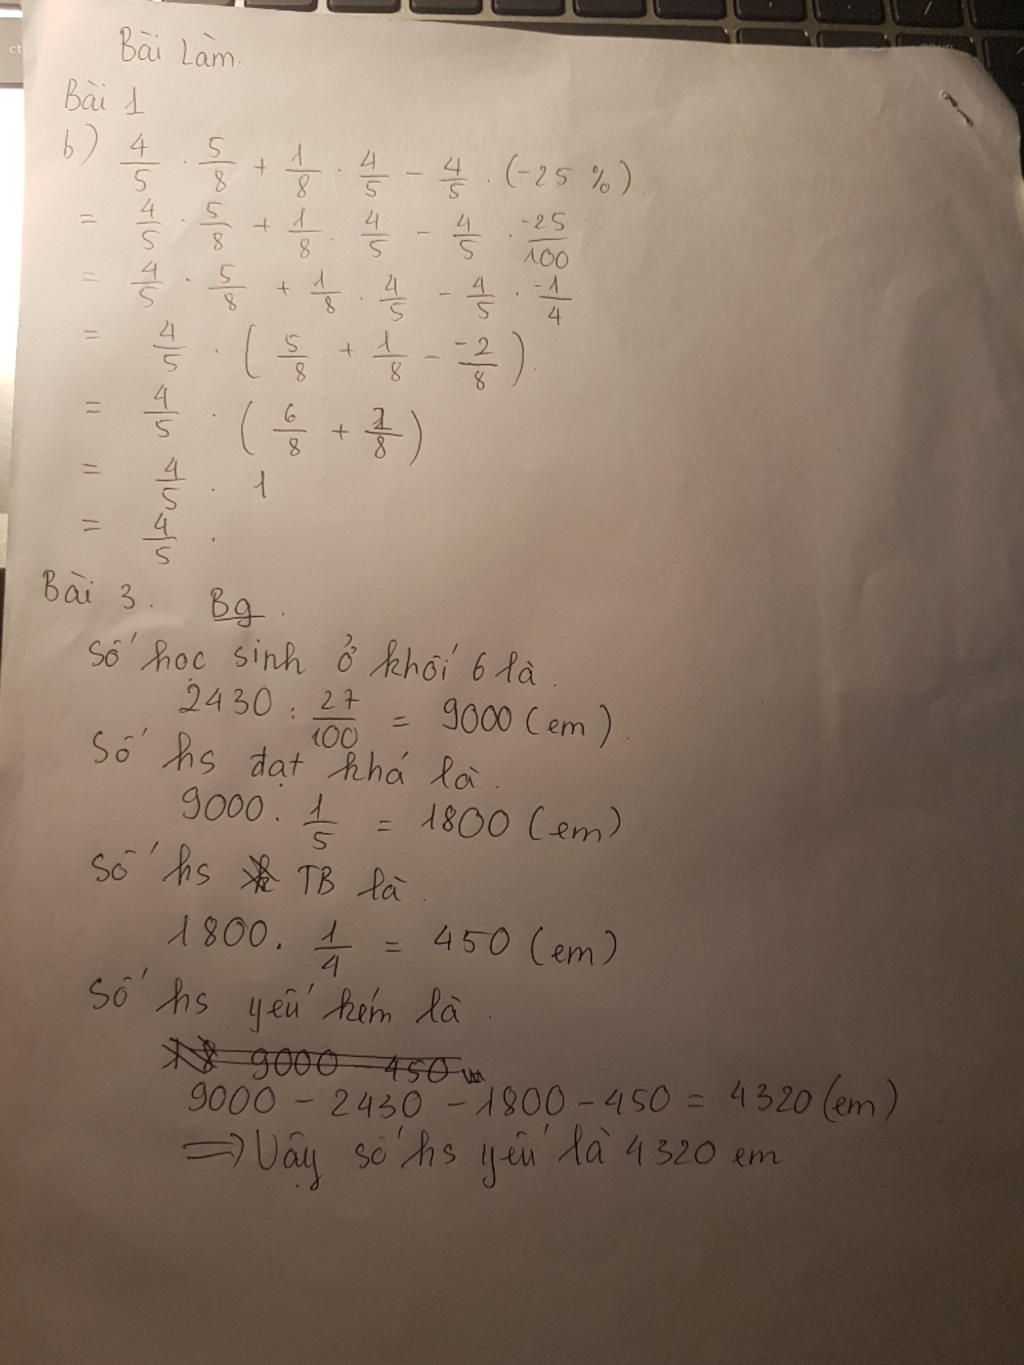 Bài Làm.
Bài 1
b) 4/5 . 5/8 + 1/8 . 4/5 - 4/5 . (-25 %).
= 4/5 . 5/8 + 1/8 . 4/5 - 4/5 . -25/100
= 4/5 . 5/8 + 1/8 . 4/5 - 4/5 . -1/4
= 4/5 . ( 5/8 + 1/8 - -2/8 ).
= 4/5 . ( 6/8 + 2/8 )
= 4/5 . 1
= 4/5 .
Bài 3. Bg.
Số học sinh ở khối 6 là.
2430 : 27/100 = 9000 (em).
Số hs đạt khá là.
9000 . 1/5 = 1800 (em)
Số hs TB là.
1800 . 1/4 = 450 (em)
Số hs yếu kém là.
9000 - 450
9000 - 2430 - 1800 - 450 = 4320 (em)
⇒ Vậy số hs yếu là 4320 em